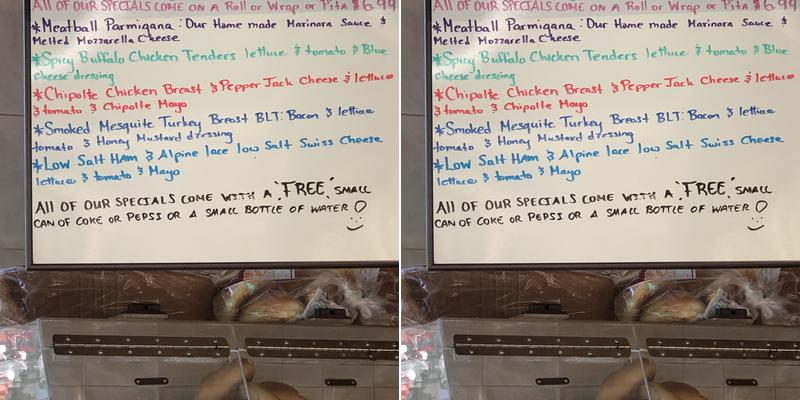 All OF OUR SPECIALS COME ON A Roll or Wrap or Pita $6.99
*Meatball Parmigana : Our Home made Marinara Sauce &
Melted Mozzarella Cheese
*Spicy Buffalo Chicken Tenders lettuce & tomato & Blue
cheese dressing
*Chipolte Chicken Breast & Pepper Jack Cheese & lettuce
& tomato & Chipolte Mayo
*Smoked Mesquite Turkey Breast BLT: Bacon & lettuce
tomato & Honey Mustard dressing
*Low Salt HAm & Alpine lace low Salt Swiss Cheese
lettuce & tomato & Mayo
All OF OUR SPECIALS COME WITH A "FREE" SMALL
CAN OF COKE OR PEPSI OR A SMALL BOTTLE OF WATER
All OF OUR SPECIALS COME ON A Roll or Wrap or Pita $6.99
*Meatball Parmigana : Our Home made Marinara Sauce &
Melted Mozzarella Cheese
*Spicy Buffalo Chicken Tenders lettuce & tomato & Blue
cheese dressing
*Chipolte Chicken Breast & Pepper Jack Cheese & lettuce
& tomato & Chipolte Mayo
*Smoked Mesquite Turkey Breast BLT: Bacon & lettuce
tomato & Honey Mustard dressing
*Low Salt HAm & Alpine lace low Salt Swiss Cheese
lettuce & tomato & Mayo
All OF OUR SPECIALS COME WITH A "FREE" SMALL
CAN OF COKE OR PEPSI OR A SMALL BOTTLE OF WATER